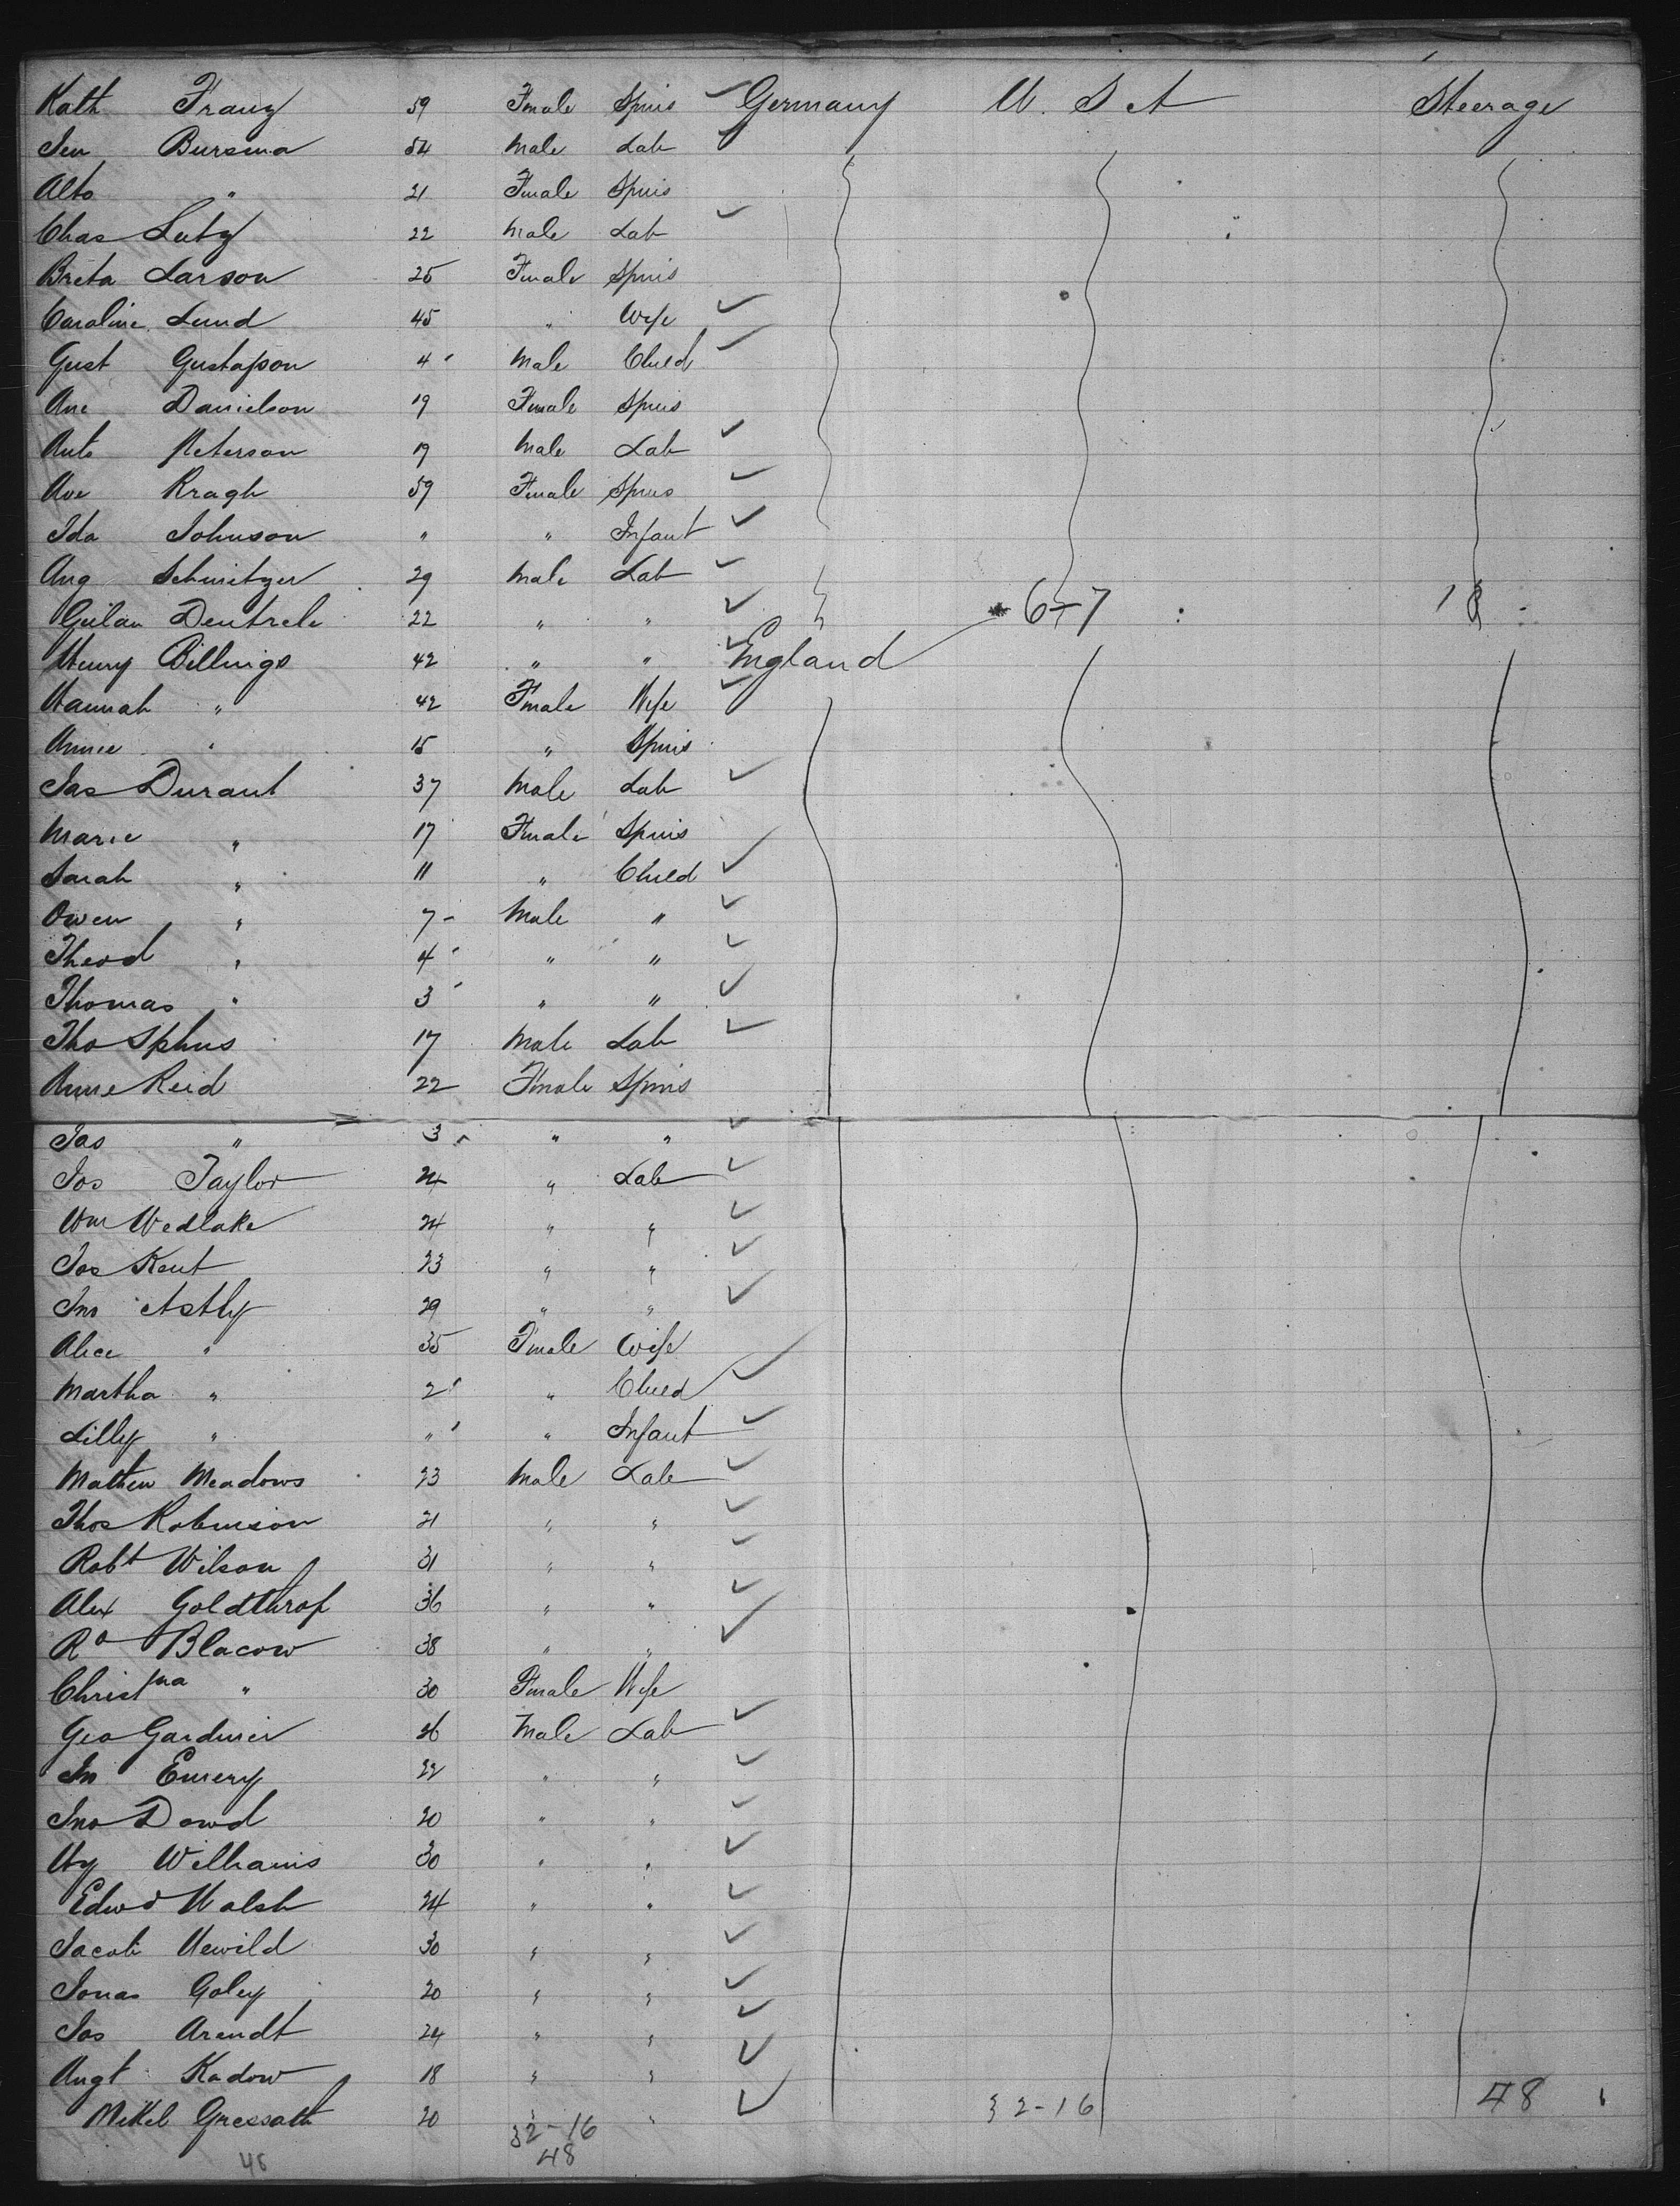 Kath Franz 59 Female Spins Germany U. S A Steerage
Jen Bursma 54 Male Lab
Alto " 21 Female Spins
Chas Lutz 22 Male Lab
Breta Larson 25 Female Spins
Caroline Lund 45 " Wife
Gust Gustafson 4 Male Child
Ane Danielson 19 Female Spins
Anto Peterson 19 Male Lab
Ane Kragh 59 Female Spins
Ida Johnson " " Infant
Aug Schnitzer 29 Male Lab
22 " " 6+7
Henry Billings 42 " " England
Hannah " 42 Female Wife
Annie " 15 " Spins
Jas Durant 37 Male Lab
Marie " 17 Female Spins
Sarah " 11 " Child
Owen " 7 - Male "
Theod " 4 " "
Thomas " 3 " "
Tho Sphus 17 Male Lab
Anne Reid 22 Female Spins
Jas " 3 " "
Jos Taylor 24 " Lab
Wm Wedlake 24 " "
Jos Kent 23 " "
Jno Astly 29 " "
Alice " 35 Female Wife
Martha " 2 " Child
Lilly " " " Infant
Mathew Meadows 23 Male Lab
Thos Robinson 21 " "
Robt Wilson 31 " "
Alex Goldthrop 36 " "
Rd Blacow 38 " "
Christina " 30 Female Wife
Geo Gardner 26 Male Lab
Jn Emery 22 " "
Jno Dowd 20 " "
Hy Williams 30 " "
Edwd Walsh 24 " "
Jacob Hewild 30 " "
Jonas Goley 20 " "
Jos Arendt 24 " "
Augt Kadow 18 " "
Mikel Gressath 20 " " 32-16 48
32-16
46 48